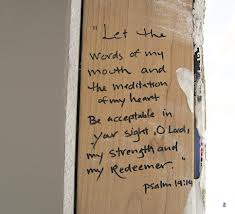 "Let the
words of my
mouth and
the meditation
of my heart
Be acceptable in
your sight, O Lord,
my strength and
my Redeemer."
psalm 19:14